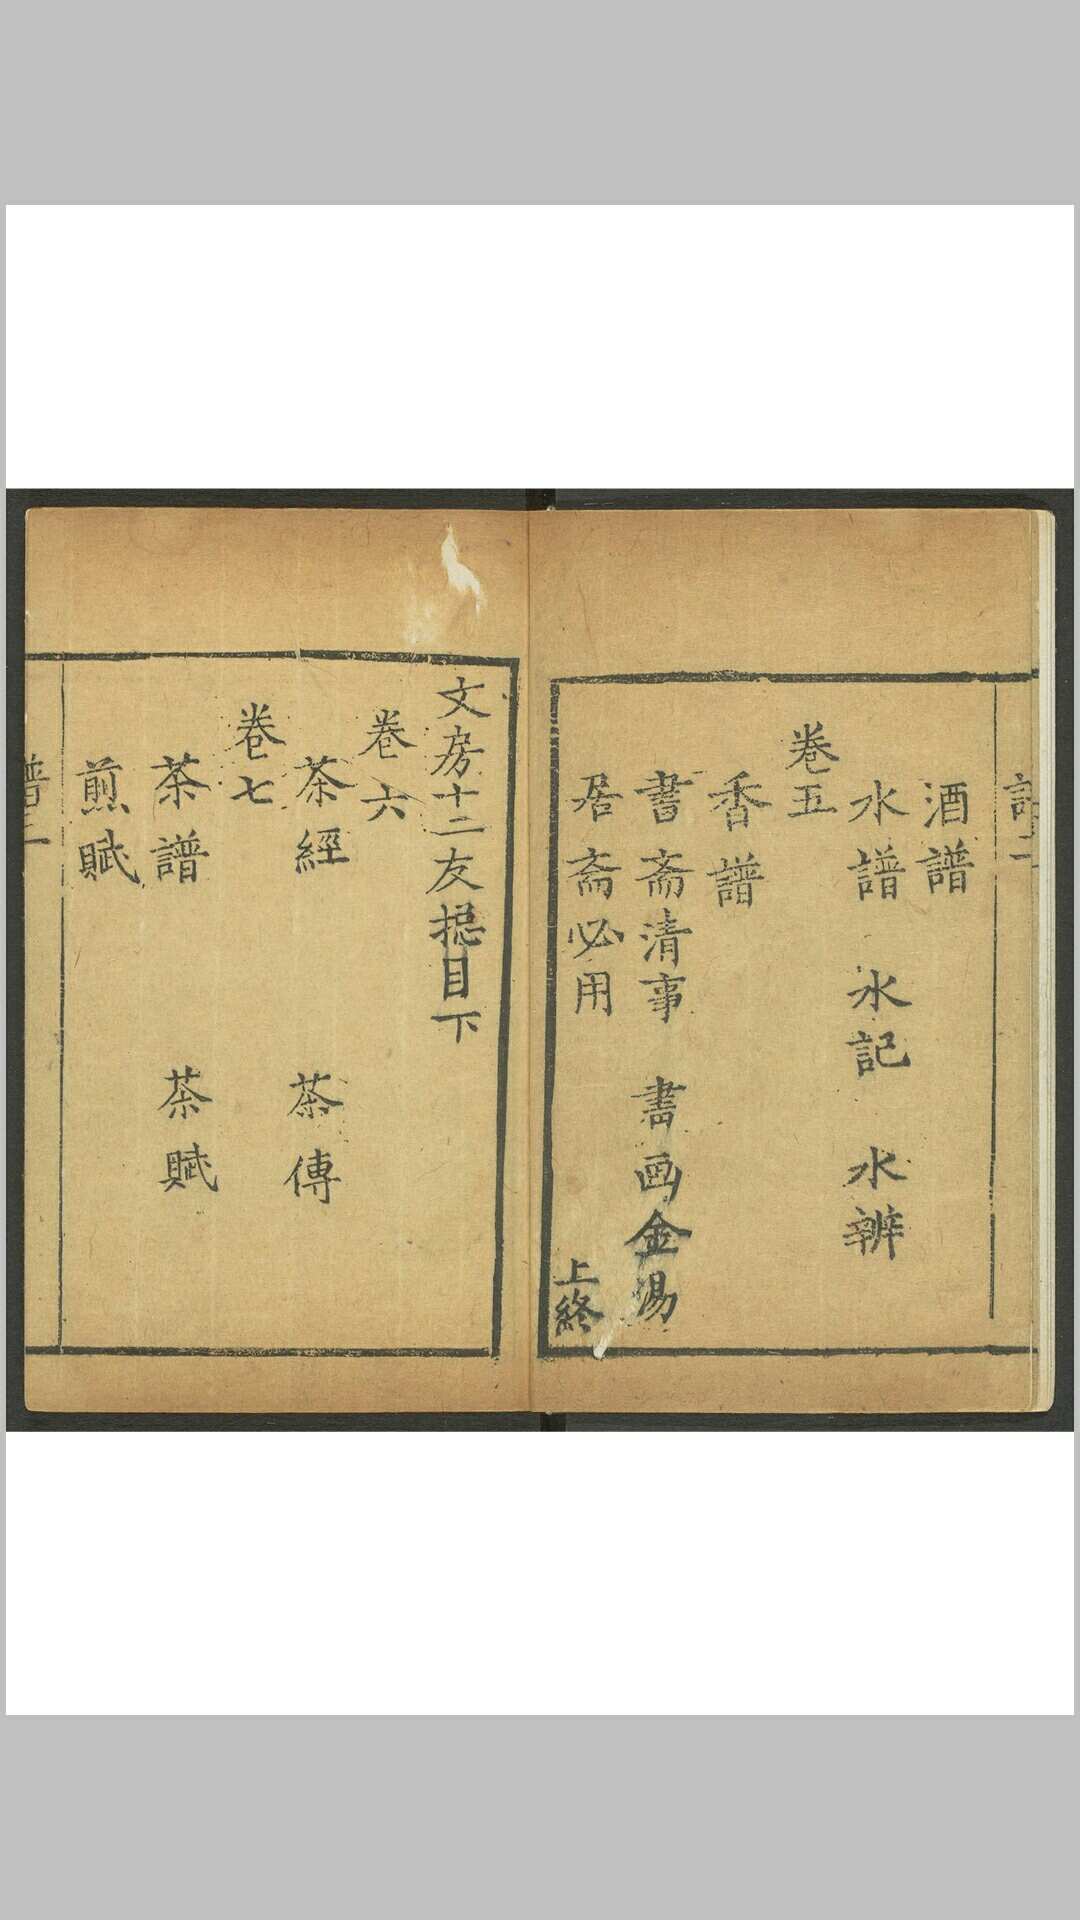 酒譜
水譜　水記　水辨
卷五
香譜
書斋清事　書画金湯
居斋必用
上終
文房十二友揔目下
卷六
茶經　茶傳
卷七
茶譜　茶賦
煎賦
譜二